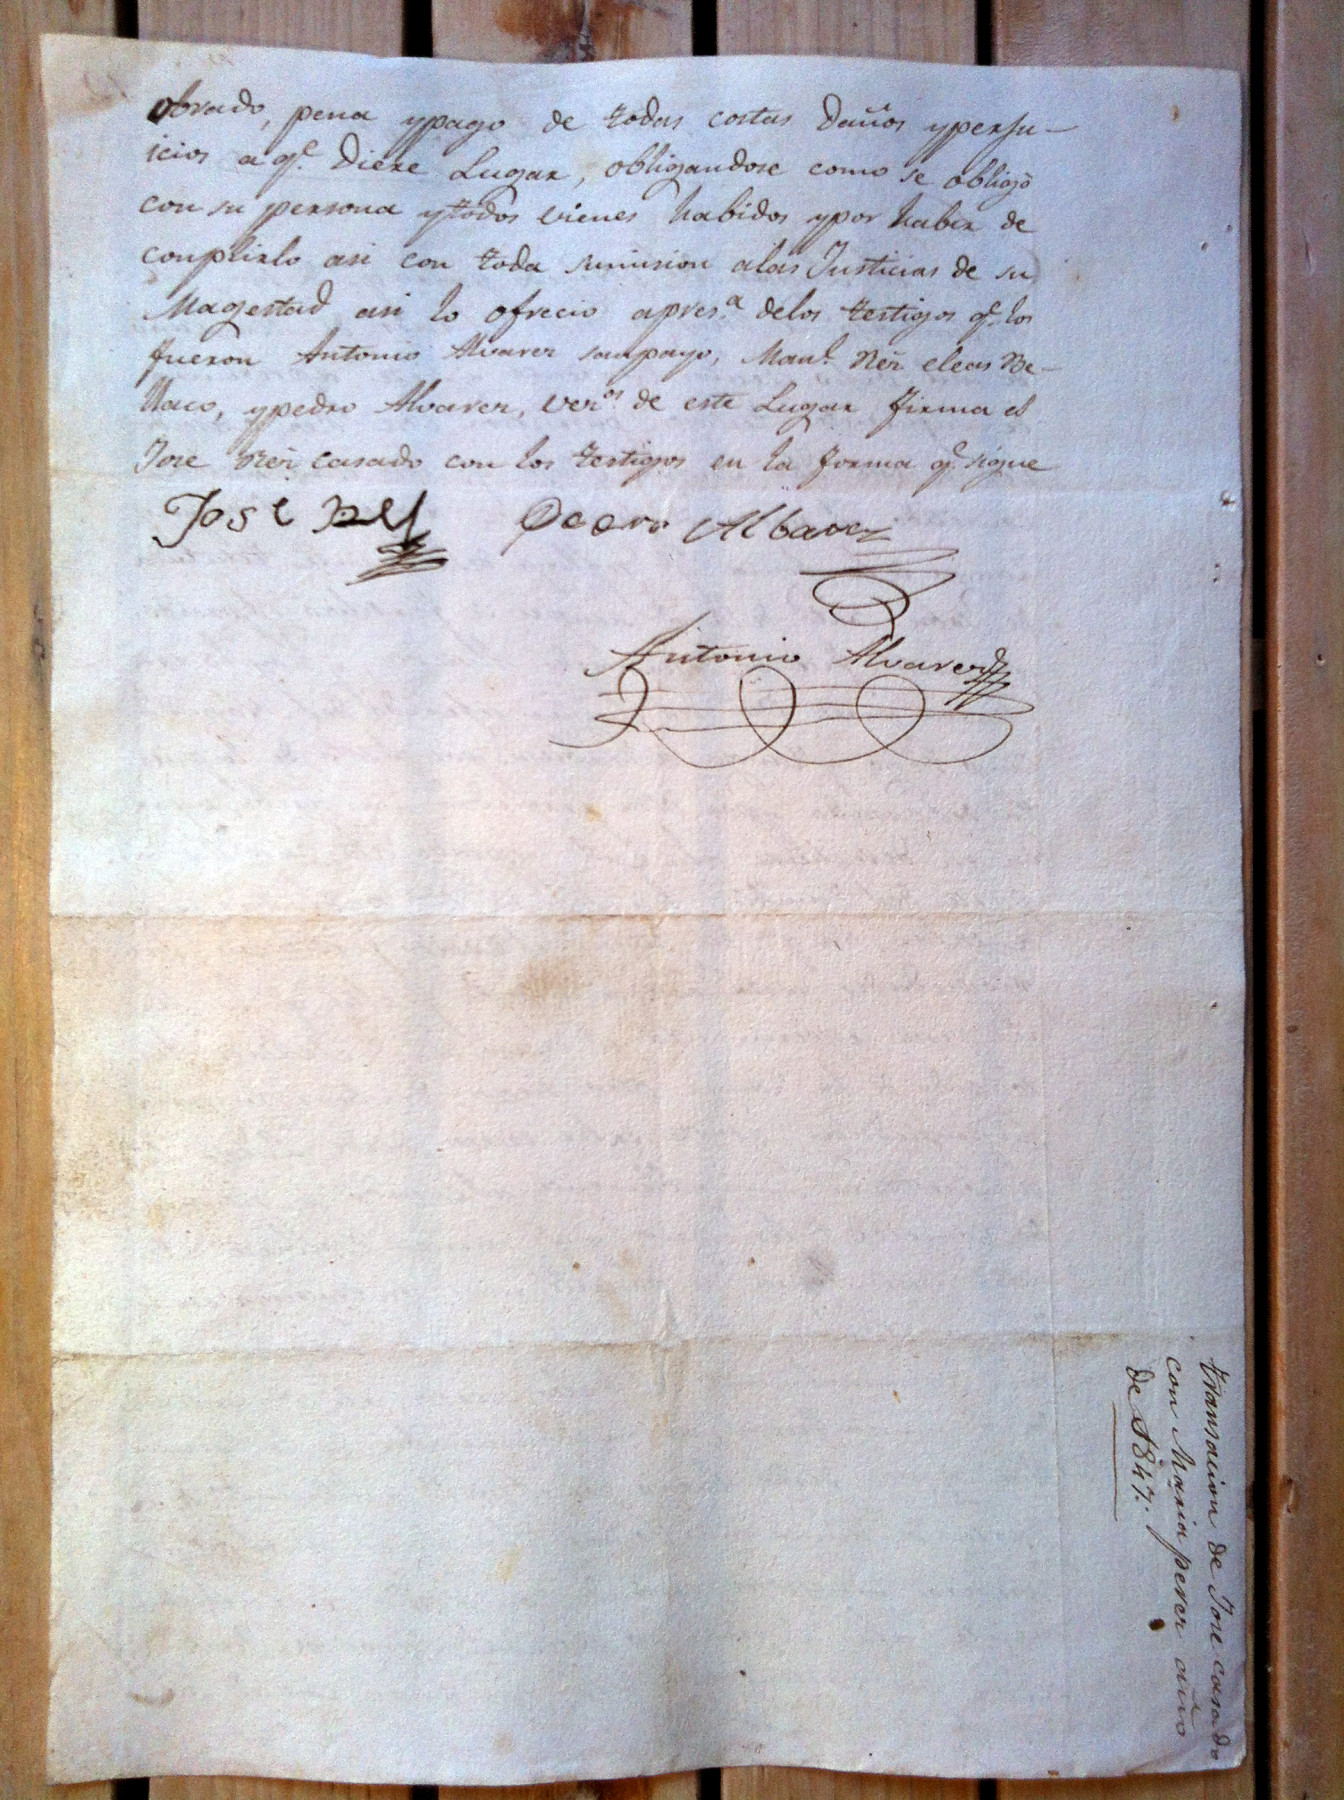 obrado, pena ypago de todas costas Daños yperju-
icios a q.e Diere Lugar, obligandose como se obligó
con su persona ytodos vienes habidos ypor haber de
conplirlo asi con toda sumision alas Justicias de su
Magestad asi lo ofrecio apres.a delos testigos q.e los
fueron Antonio Alvarez sanpayo, Man.l Rẽz eleas Be-
llaco, ypedro Alvarez, vez.os de este Lugar firma el
Jose Rẽz casado con los testigos en la forma q.e sigue
José Pedro Albarez
Antonio Alvarez
transacion de Jose casado
con Maria perez año
de 1847.